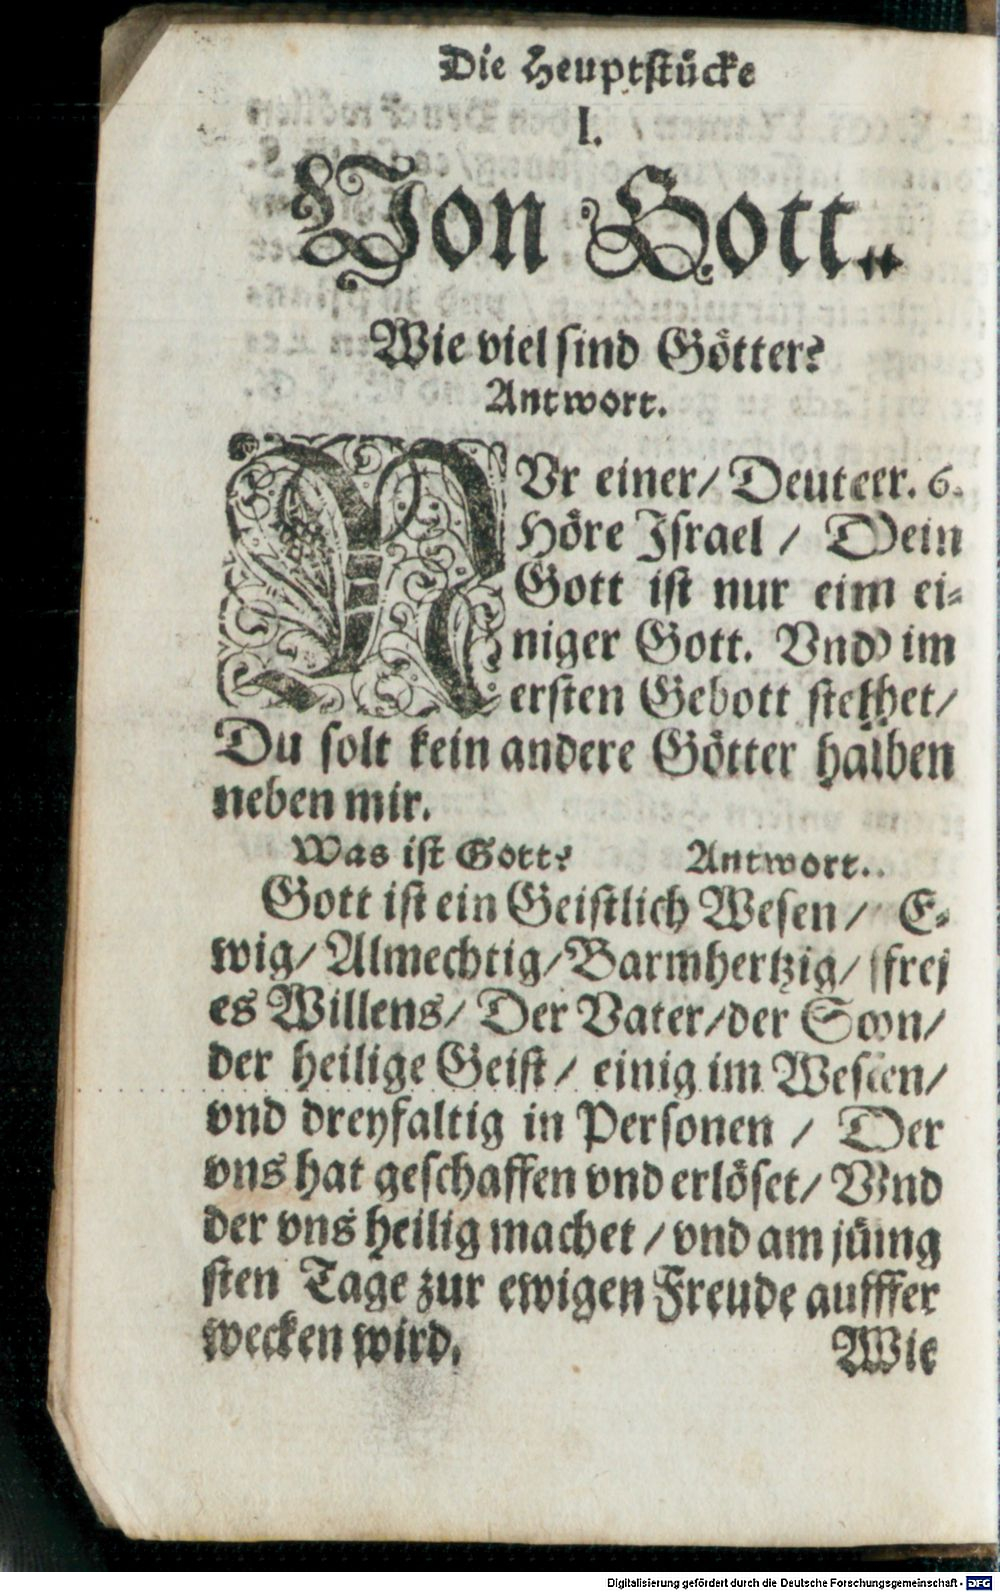 Die Heuptſtücke
I.
Von Gott.
Wie viel ſind Götter?
Antwort.
NVr einer/ Deuteer. 6.
Höre Iſrael / Dein
Gott iſt nur eim ei⸗
niger Gott. Vnd im
erſten Gebott ſtehet/
Du ſolt kein andere Götter haben
neben mir.
Was iſt Gott? Antwort.
Gott iſt ein Geiſtlich Weſen/ E⸗
wig/ Almechtig/ Barmhertzig/ frej
es Willens/ Der Vater/ der Soon/
der heilige Geiſt/ einig im Weſeen/
vnd dreyfaltig in Perſonen / Der
vns hat geſchaffen vnd erlöſet/ Vnd
der vns heilig machet / vnd am jüng
ſten Tage zur ewigen Freude auffer
wecken wird.
Wie
Digitalisierung gefördert durch die Deutsche Forschungsgemeinschaft - DFG